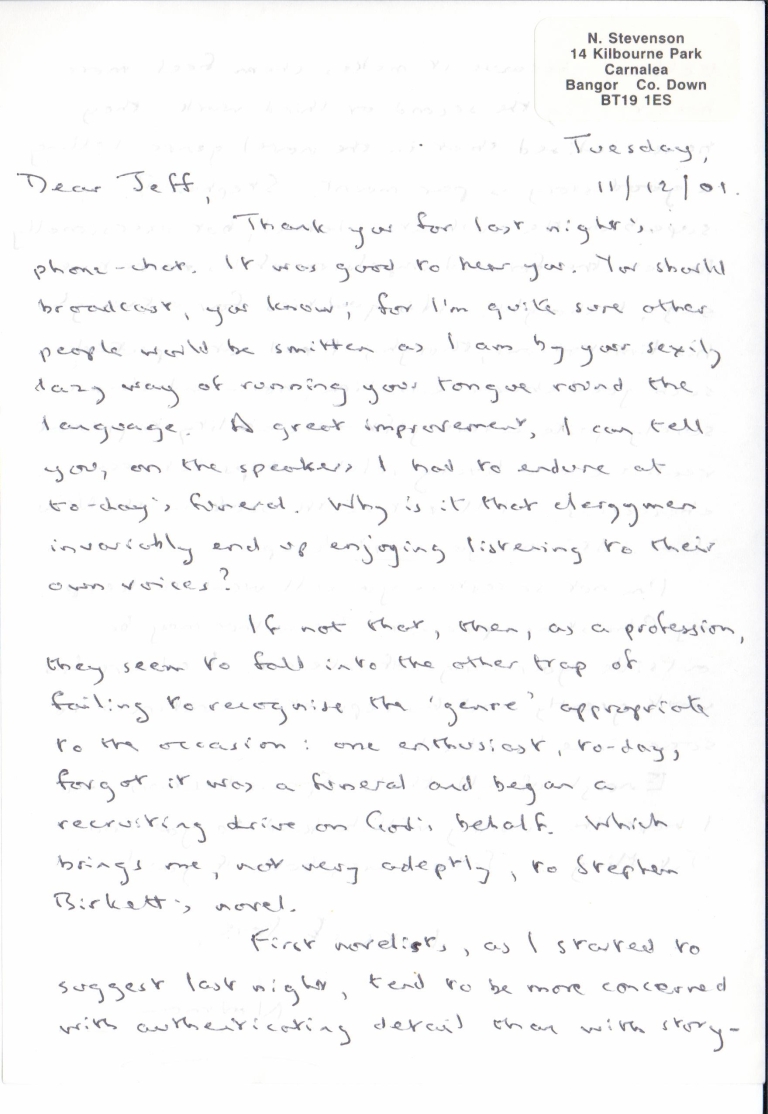 N. Stevenson
14 Kilbourne Park
Carnalea
Bangor Co. Down
BT19 1ES
Tuesday,
Dear Jeff, 11/12/01.
Thank you for last night's
phone-chat. It was good to hear you. You should
broadcast, you know, for I'm quite sure other
people would be smitten as I am by your sexily
lazy way of running your tongue round the
language. A great improvement, I can tell
you, on the speakers I had to endure at
to-day's funeral. Why is it that clergymen
invariably end up enjoying listening to their
own voices?
If not that, then, as a profession,
they seem to fall into the other trap of
failing to recognise the 'genre' appropriate
to the occasion: one enthusiast, to-day,
forgot it was a funeral and began a
recruiting drive on God's behalf. Which
brings me, not very adeptly, to Stephen
Birkett's novel.
First novelists, as I started to
suggest last night, tend to be more concerned
with authenticating detail than with story-